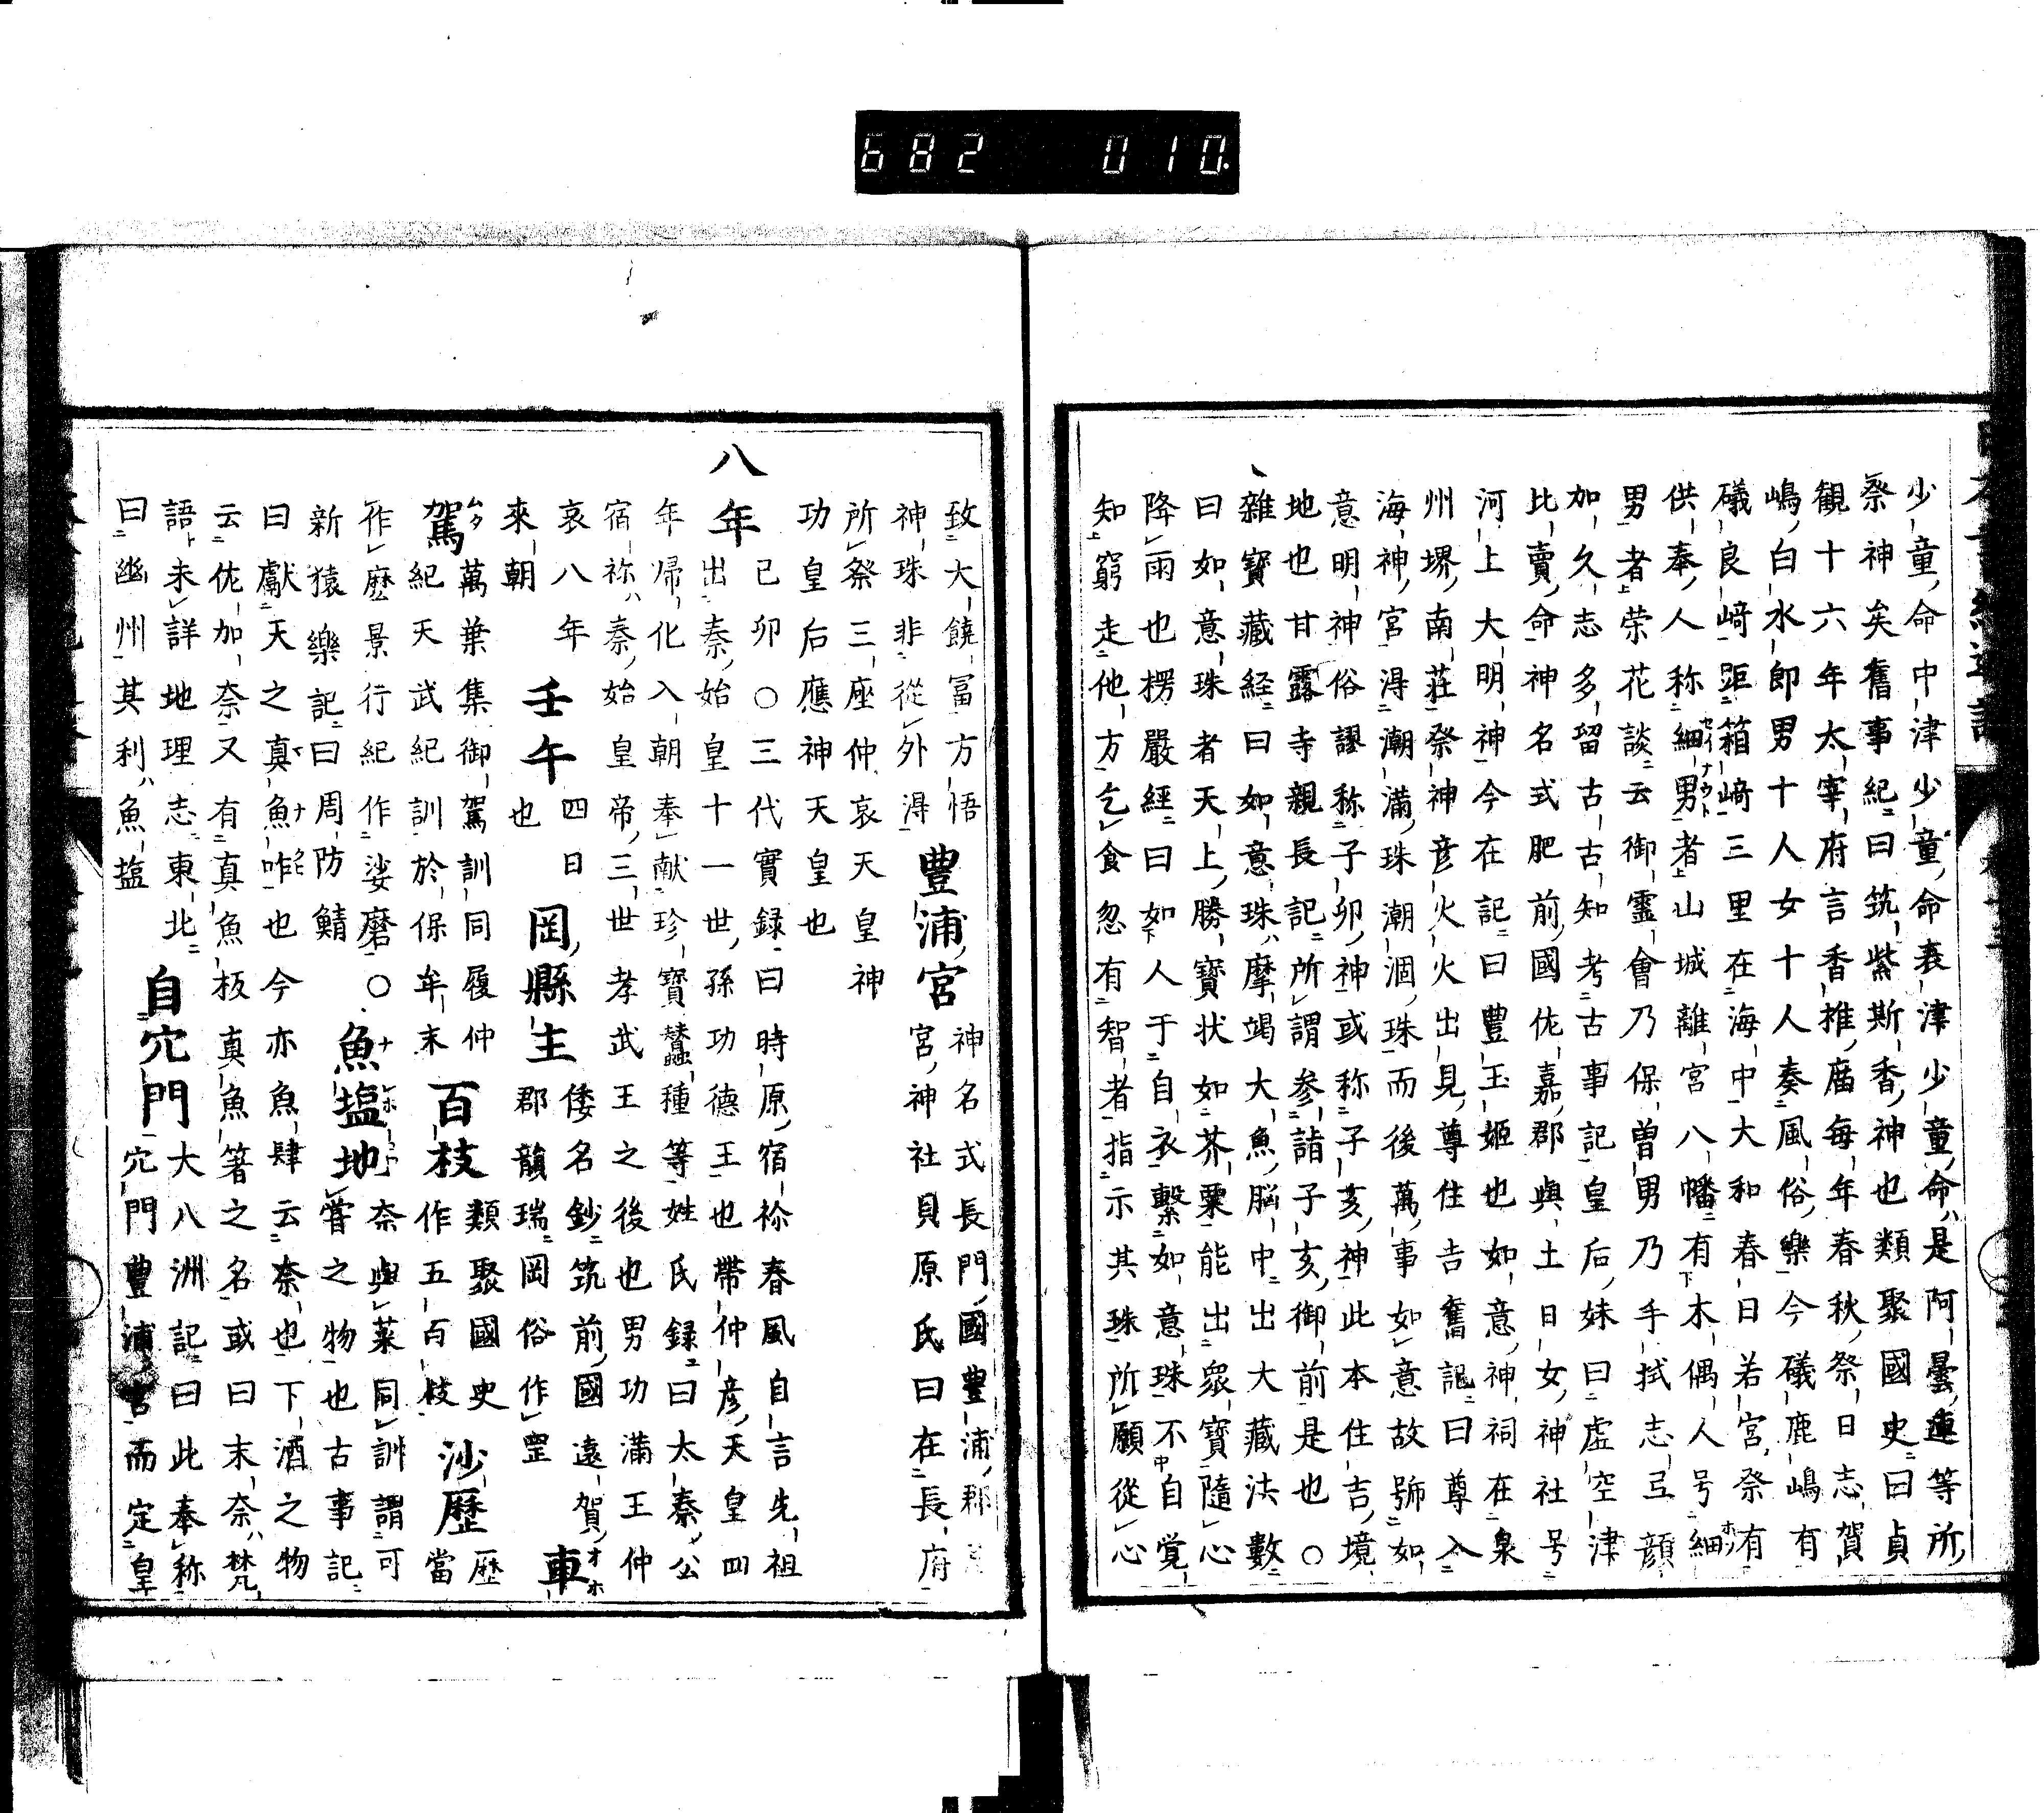 682 010
少童命中津少童命表津少童命是阿曇連等所
祭神矣舊事紀曰筑紫斯香神也類聚國史曰貞
觀十六年太宰府言香椎庿每年春秋祭日志賀
嶋白水郎男十人女十人奏風俗樂今礒鹿嶋有
礒良﨑距箱﨑三里在海中大和春日若宮祭有
供奉人称細男者山城離宮八幡有木偶人号細
男者荣花談云御霊會乃保曽男乃手拭志弖顔
如久志多留古古知考古事記皇后妹曰虚空津
比賣命神名式肥前國佐嘉郡與土日女神社号
河上大明神今在記曰豊玉姬也如意神祠在泉
州堺南莊祭神彦火火出見尊住吉舊記曰尊入
海神宮得潮滿珠潮涸珠而後萬事如意故號如
意明神俗謬称子卯神或称子亥神此本住吉境
地也甘露寺親長記所謂参詣子亥御前是也○
雜寶藏経曰如意珠摩竭大魚脳中出大藏法數
曰如意珠者天上勝寶状如芥粟能出衆寶隨心
降雨也楞嚴經曰如人于自衣繫如意珠不自覚
知窮走他方乞食忽有智者指示其珠所願從心
致大饒冨方悟
神珠非從外得
豊浦宮
神名式長門國豊浦郡
宮神社貝原氏曰在長府
所祭三座仲哀天皇神
功皇后應神天皇也
八年
己卯○三代實録曰時原宿祢春風自言先祖
出秦始皇十一世孫功德王也帶仲彦天皇四
年歸化入朝奉献珍寶蠶種等姓氏録曰太秦公
宿祢秦始皇帝三世孝武王之後也男功滿王仲
哀八年
來朝
壬午
四日
也
岡縣主
倭名鈔筑前國遠賀
郡韻瑞岡俗作罡
車
駕
萬葉集御駕訓同履仲
紀天武紀訓於保牟末
百枝
類聚國史
作五百枝
沙歷
歷當
作麽景行紀作娑磨○
魚塩地
奈與菜同訓謂可
嘗之物也古事記
新猿樂記曰周防鯖
曰獻天之真魚咋也今亦魚肆云奈也下酒之物
云佐加奈又有真魚板真魚箸之名或曰末奈梵
語未詳地理志東北
曰幽州其利魚塩
自穴門
大八洲記曰此奉称
穴門豊浦宮而定皇